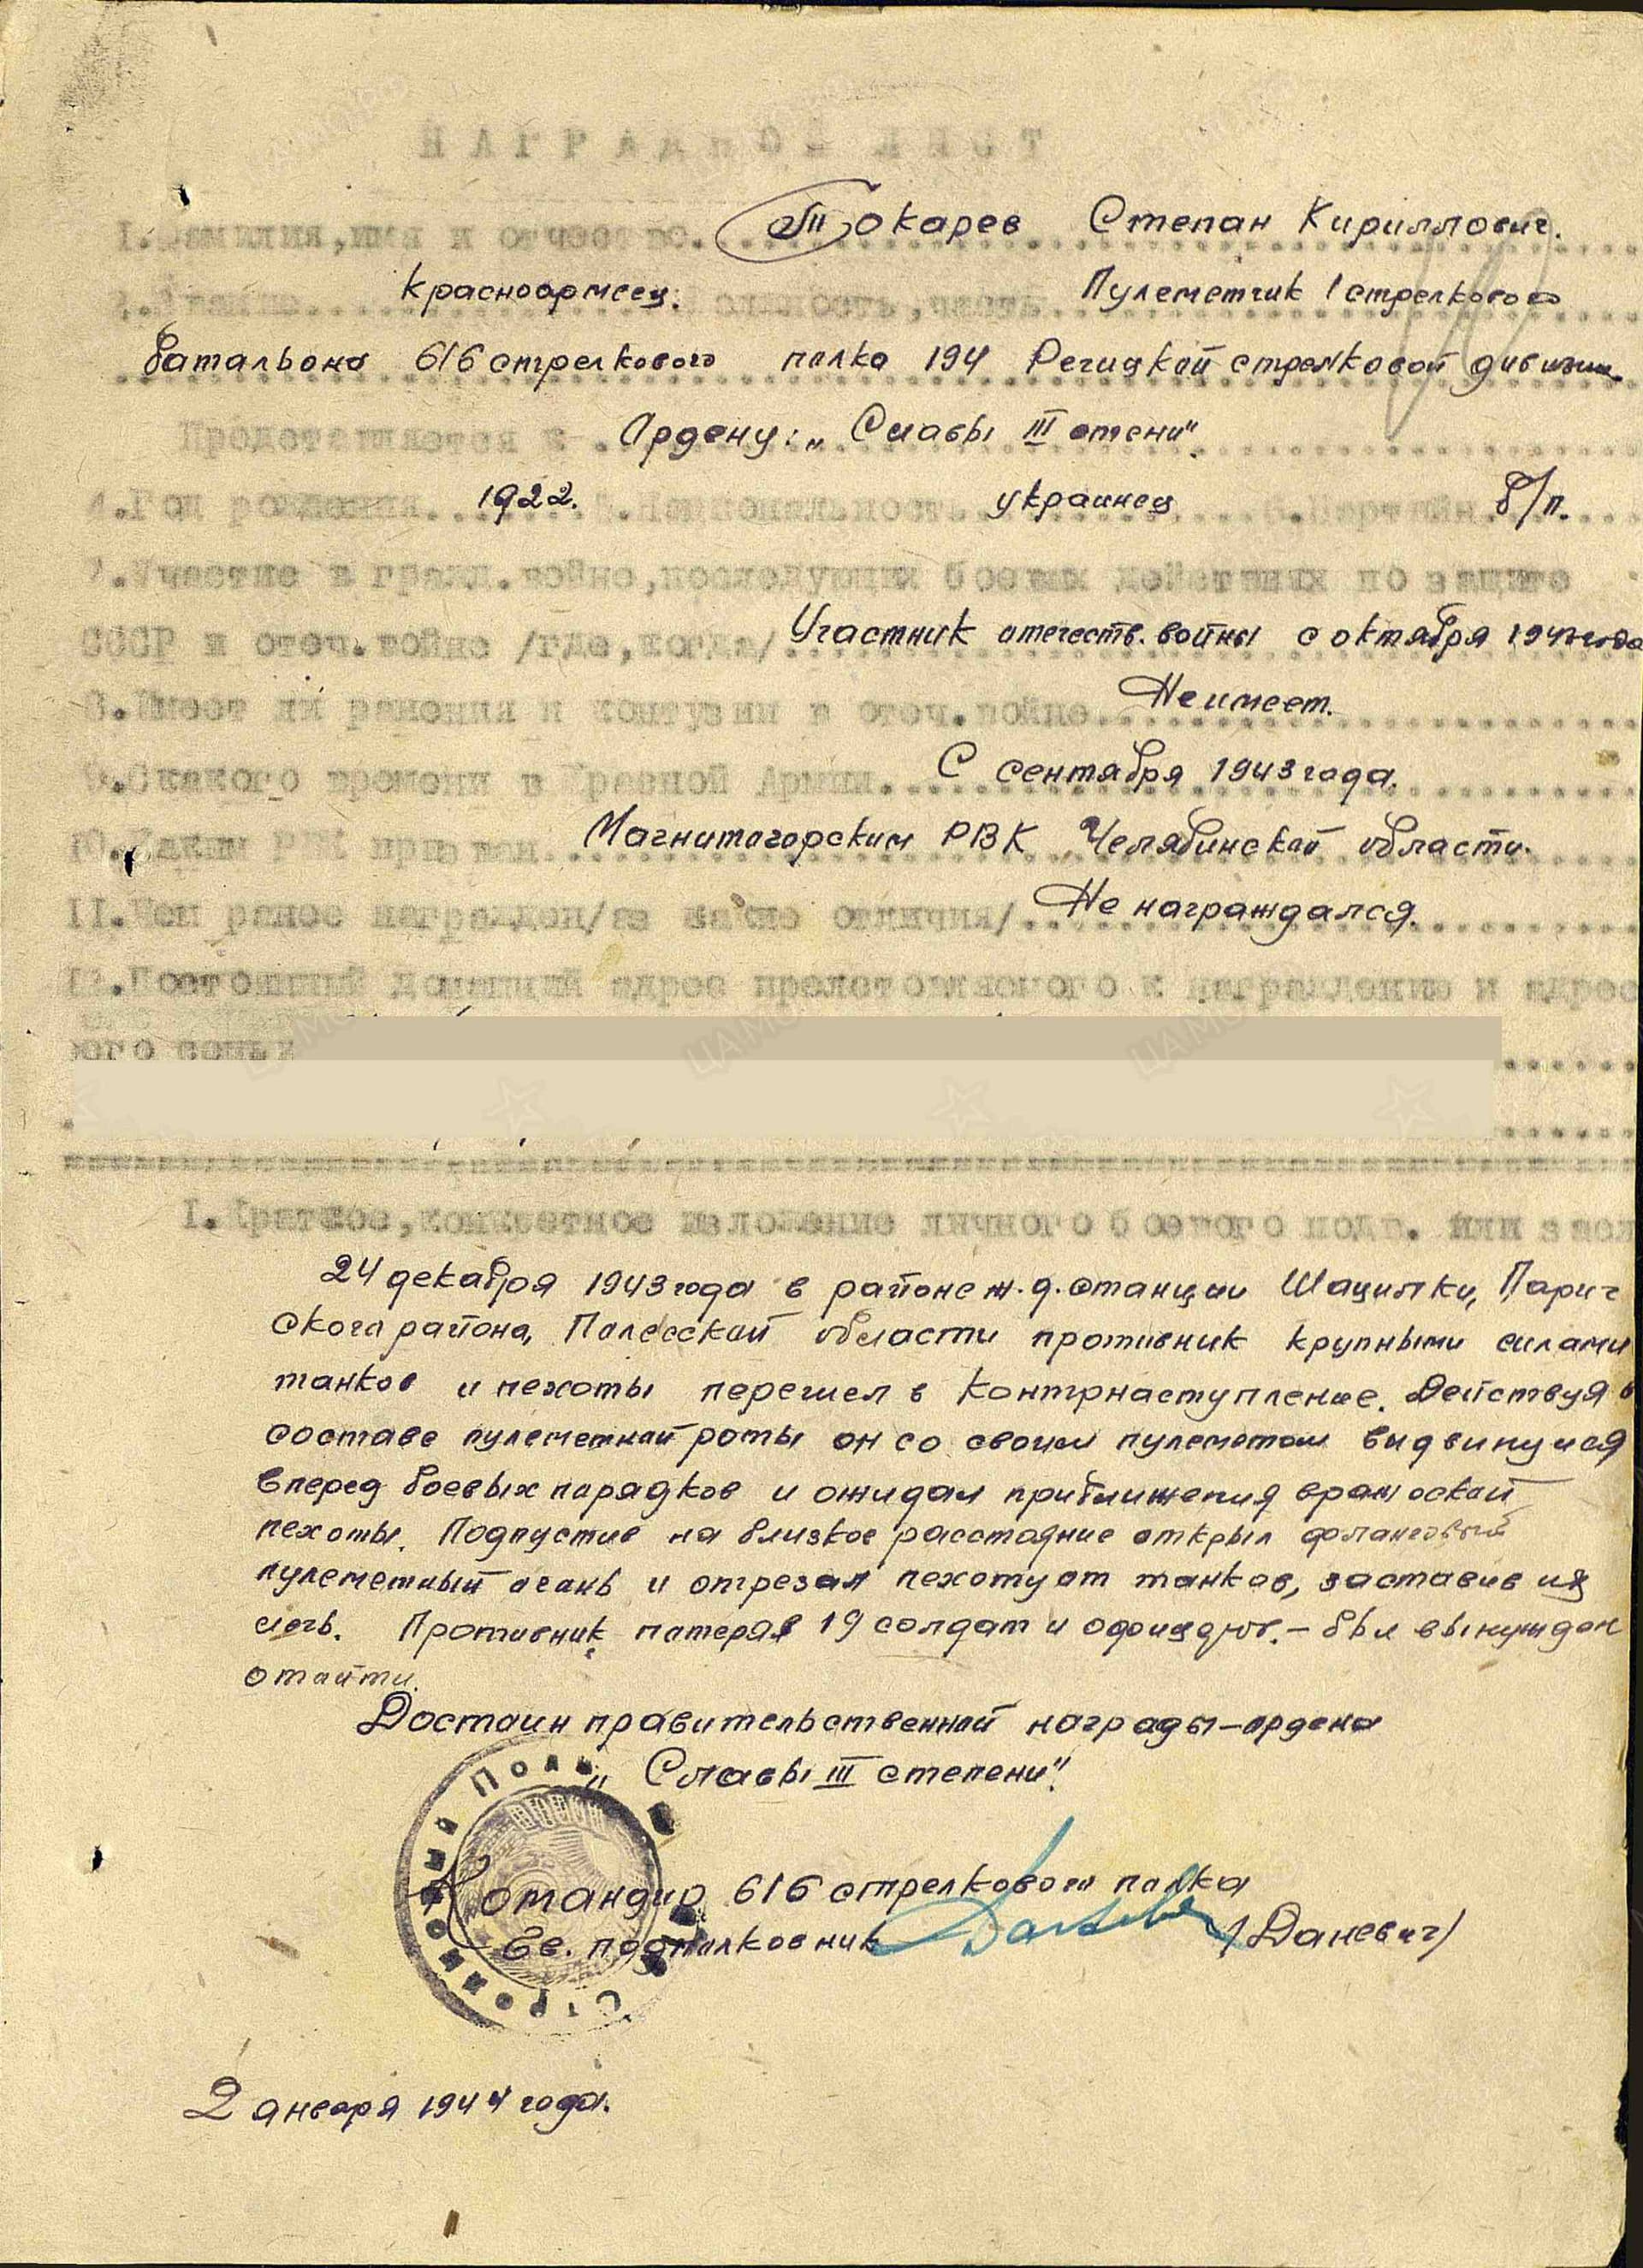 НАГРАДНОЙ ЛИСТ
1.Фамилия,имя и отчество. Токарев Степан Кириллович.
2.Звание. Красноармеец. 3.Должность,часть Пулеметчик 1 стрелкового
батальона 616 стрелкового полка 194 Речицкой стрелковой дивизии.
Представляется к Ордену: „Славы III степени".
4.Год рождения 1922. 5.Национальность украинец 6.Партийн. б/п.
7.Участие в гражд.войне,последующих боевых действиях по защите
СССР и отеч.войне /где,когда/ Участник отечеств. войны с октября года
8.Имеет ли ранения и контузии в отеч.войне Не имеет.
9.С какого времени в Красной Армии. С сентября 1943 года.
10.Каким РВК призван Магнитогорским РВК Челябинской области.
11.Чем ранее награжден/за какие отличия/ Не награждался.
12.Постоянный домашний адрес представляемого к награждению и адрес
его семьи
1.Краткое,конкретное изложение личного боевого подв. или засл
24 декабря 1943 года в районе ж.д. станции Шацилки, Парич
ского района, Полесской области противник крупными силами
танков и пехоты перешел в контрнаступление. Действуя в
составе пулеметной роты он со своим пулеметом выдвинулся
вперед боевых порядков и ожидал приближения вражеской
пехоты. Подпустив на близкое расстояние открыл фланговый
пулеметный огонь и отрезал пехоту от танков, заставив их
лечь. Противник потеряв 19 солдат и офицеров. – был вынужден
отойти.
Достоин правительственной награды – ордена
„Славы III степени".
Командир 616 стрелкового полка
Гв. подполковник /Даневич/
2 января 1944 года.